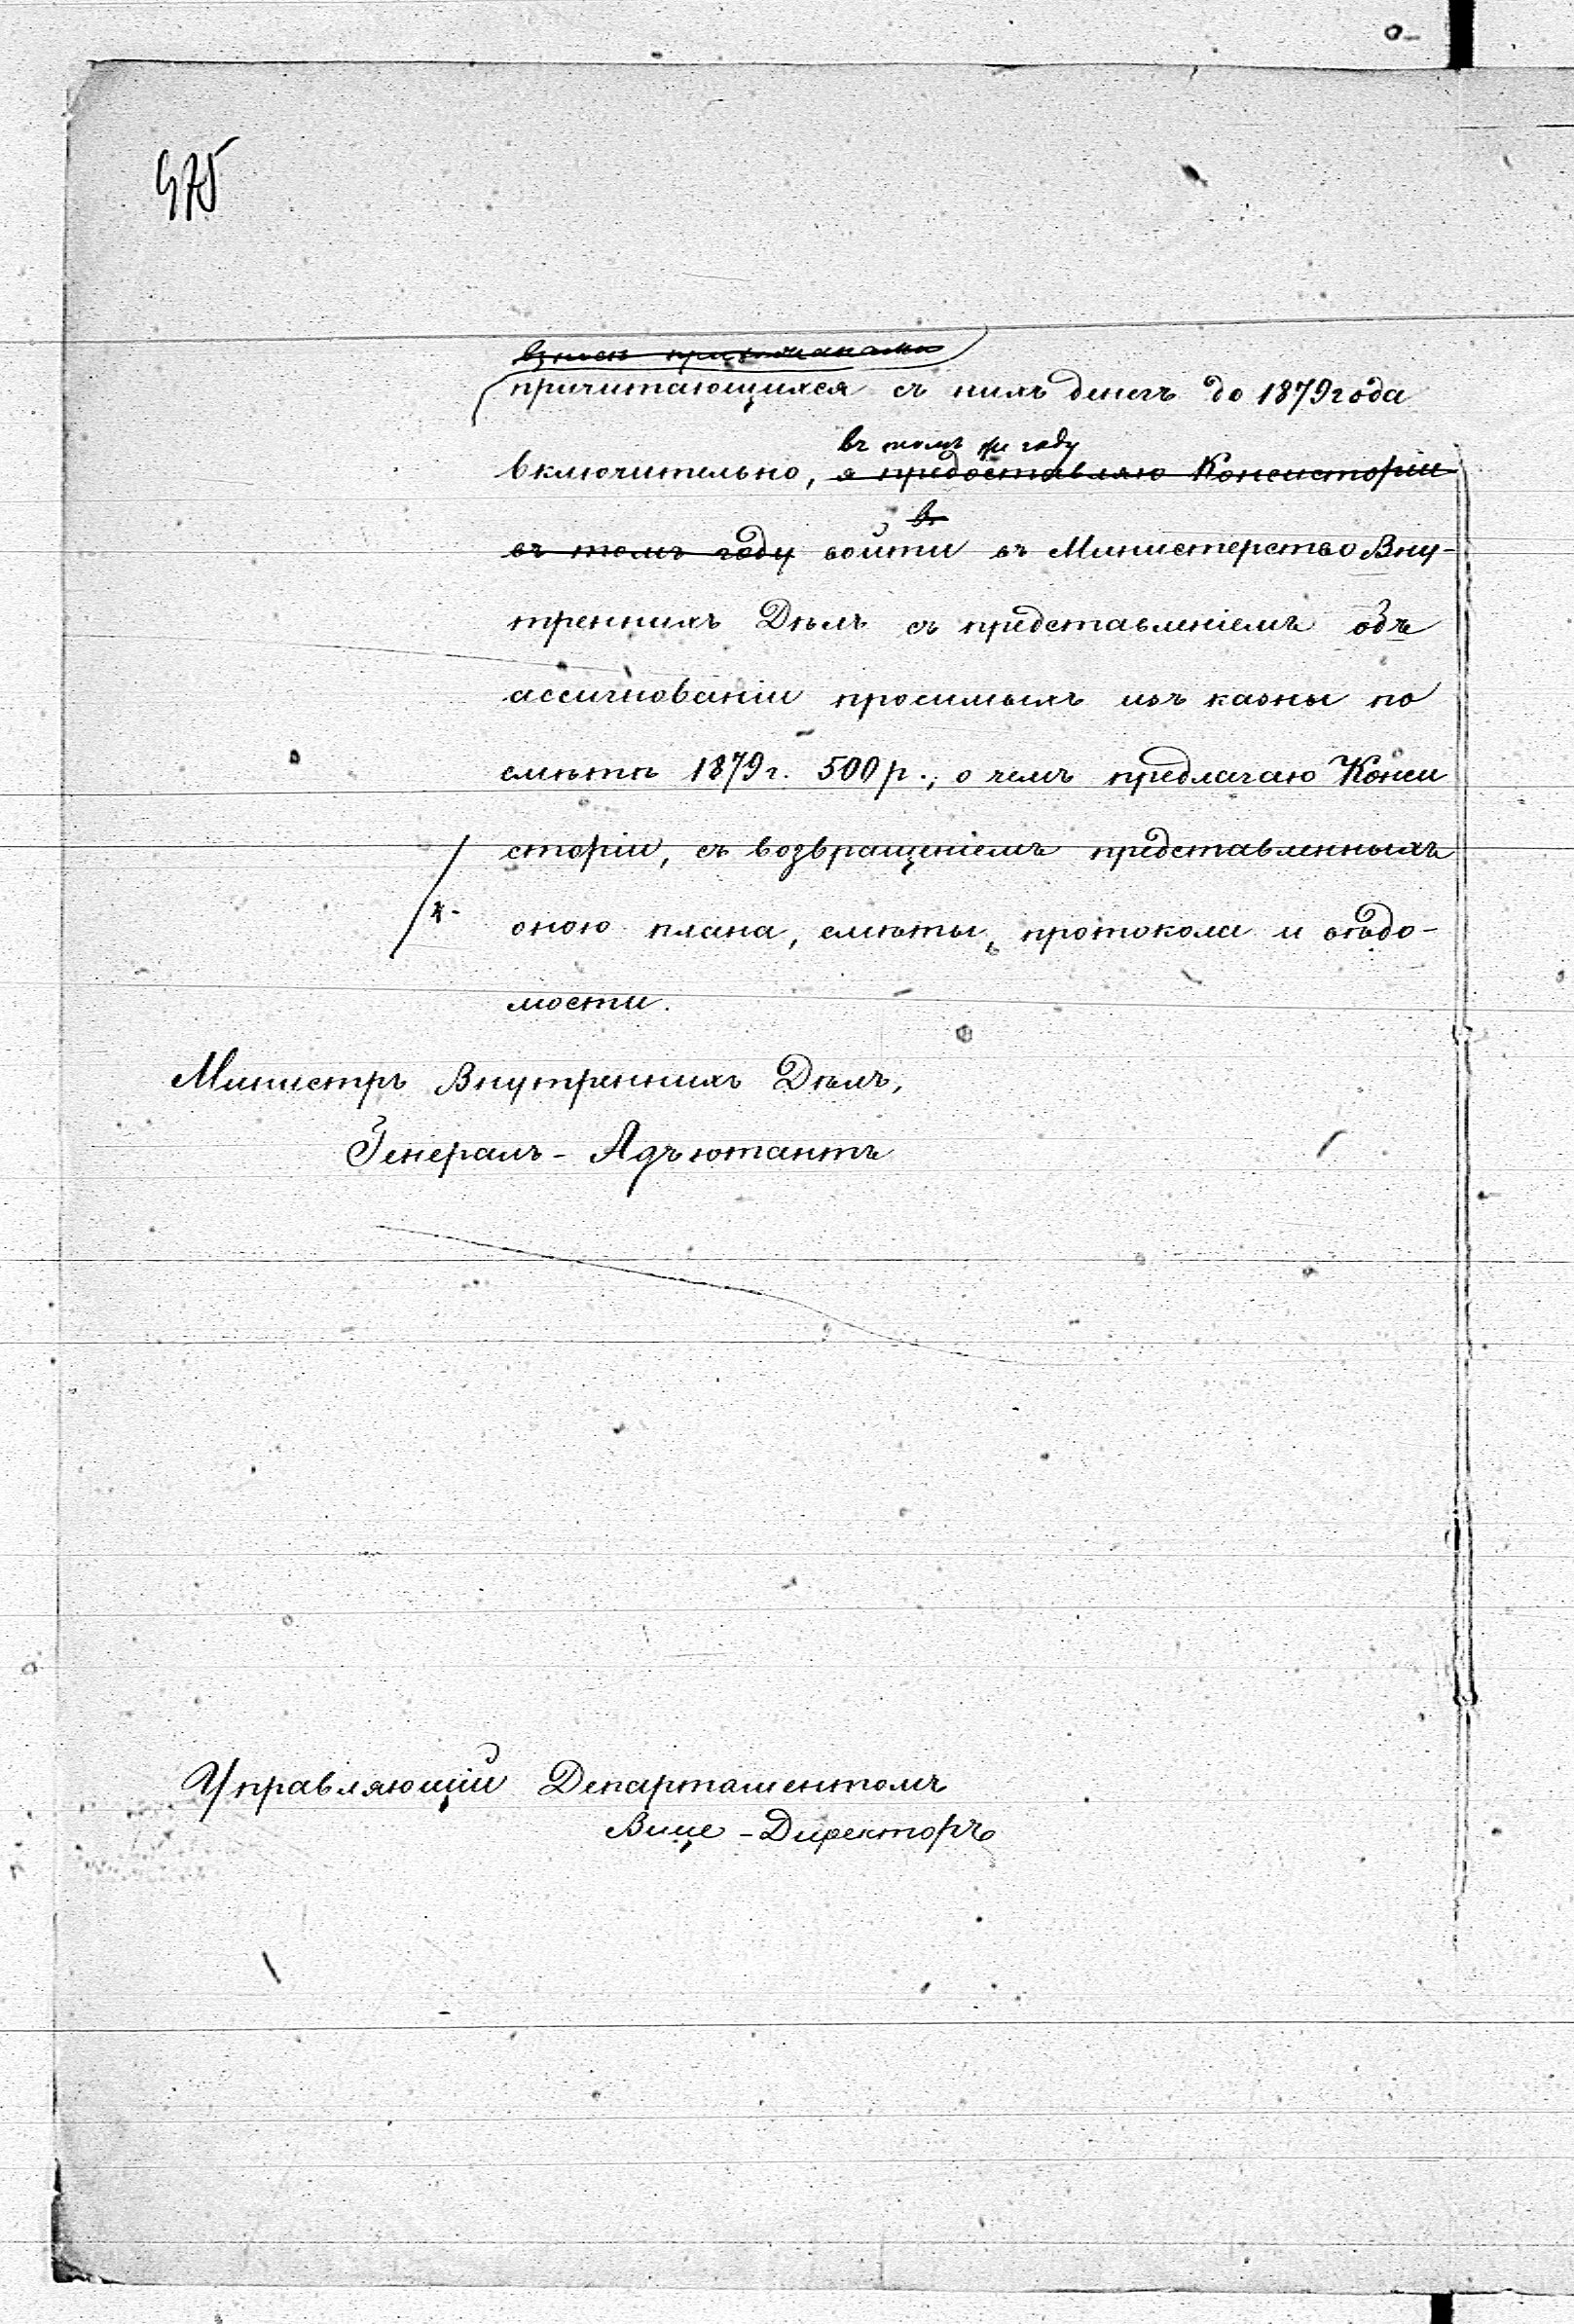 475
взносъ прихожанами
причитающихся съ нихъ денегъ до 1879 года
въ томъ же году
включительно, я предоставляю Консисторіи
въ
въ томъ году войти въ Министерство Вну-
треннихъ Дѣлъ съ представленіемъ объ
ассигнованіи просимыхъ изъ казны по
смѣтѣ 1879 г. 500 р., о чемъ предлагаю Конси
сторіи, съ возвращеніемъ представленныхъ
оною плана, смѣты, протокола и вѣдо-
мости.
Министръ Внутреннихъ Дѣлъ,
Генералъ-Адъютантъ
Управляющій Департаментомъ
Вице-Директоръ